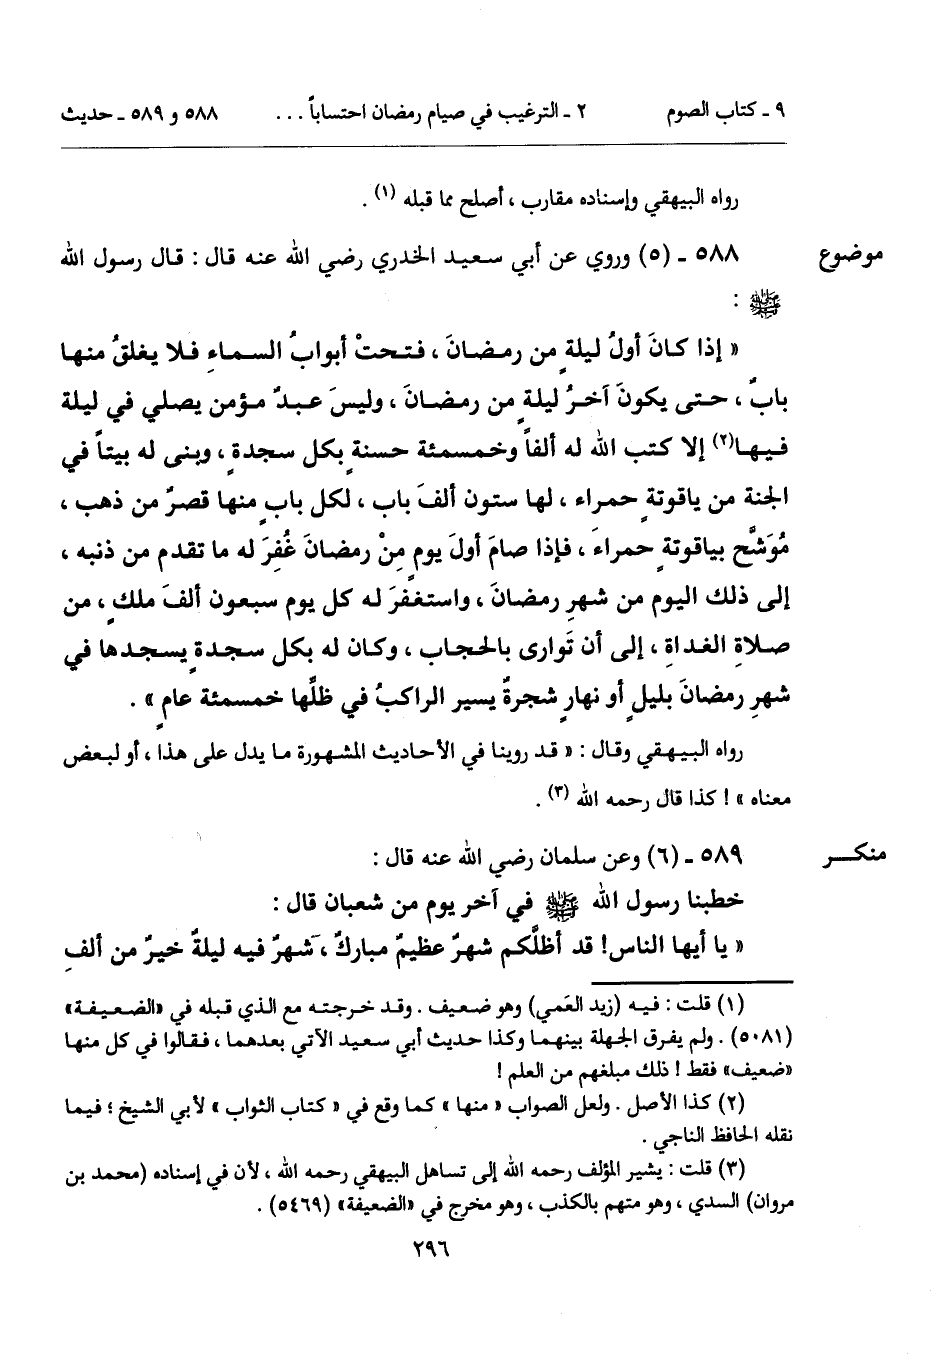 ٩ ـ كتاب الصوم ٢ ـ الترغيب في صيام رمضان احتساباً ... ٥٨٨ و ٥٨٩ ـ حديث
رواه البيهقي وإسناده مقارب ، أصلح مما قبله (١) .
موضوع ٥٨٨ ـ (٥) وروي عن أبي سعيد الخدري رضي الله عنه قال : قال رسول الله
ﷺ :
« إذا كانَ أولُ ليلةٍ من رمضانَ ، فتحتْ أبوابُ السماءِ فلا يغلقُ منها
بابٌ ، حتى يكونَ آخرُ ليلةٍ من رمضانَ ، وليسَ عبدٌ مؤمن يصلي في ليلة
فيها(٢) إلا كتب الله له ألفاً وخمسمئة حسنة بكل سجدةٍ ، وبنى له بيتاً في
الجنة من ياقوتةٍ حمراء ، لها ستون ألفَ باب ، لكل بابٍ منها قصرٌ من ذهب ،
مُوَشَّح بياقوتةٍ حمراءَ ، فإذا صامَ أولَ يومٍ مِنْ رمضانَ غُفِرَ له ما تقدم من ذنبه ،
إلى ذلك اليوم من شهرِ رمضانَ ، واستغفرَ له كل يوم سبعون ألفَ ملكٍ ، من
صلاةِ الغداةِ ، إلى أن تَوارى بالحجاب ، وكان له بكل سجدةٍ يسجدها في
شهرِ رمضانَ بليلٍ أو نهارٍ شجرةٌ يسير الراكبُ في ظلِّها خمسمئة عامٍ » .
رواه البيهقي وقال : « قد روينا في الأحاديث المشهورة ما يدل على هذا ، أو لبعض
معناه » ! كذا قال رحمه الله (٣) .
منكر ٥٨٩ ـ (٦) وعن سلمان رضي الله عنه قال :
خطبنا رسول الله ﷺ في آخر يوم من شعبان قال :
« يا أيها الناس! قد أظلَّكم شهرٌ عظيمٌ مباركٌ ، شهرٌ فيه ليلةٌ خيرٌ من ألفِ
(١) قلت : فيه (زيد العَمي) وهو ضعيف . وقد خرجته مع الذي قبله في «الضعيفة»
(٥٠٨١) . ولم يفرق الجهلة بينهما وكذا حديث أبي سعيد الآتي بعدهما ، فقالوا في كل منها
«ضعيف» فقط ! ذلك مبلغهم من العلم !
(٢) كذا الأصل . ولعل الصواب « منها » كما وقع في « كتاب الثواب » لأبي الشيخ ؛ فيما
نقله الحافظ الناجي .
(٣) قلت : يشير المؤلف رحمه الله إلى تساهل البيهقي رحمه الله ، لأن في إسناده (محمد بن
مروان) السدي ، وهو متهم بالكذب ، وهو مخرج في «الضعيفة» (٥٤٦٩) .
٢٩٦